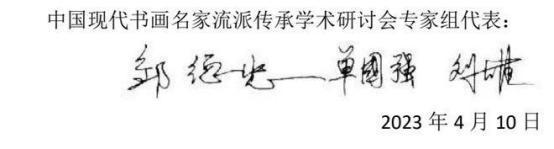 中国现代书画名家流派传承学术研讨会专家组代表：
单國强
2023 年 4 月 10 日